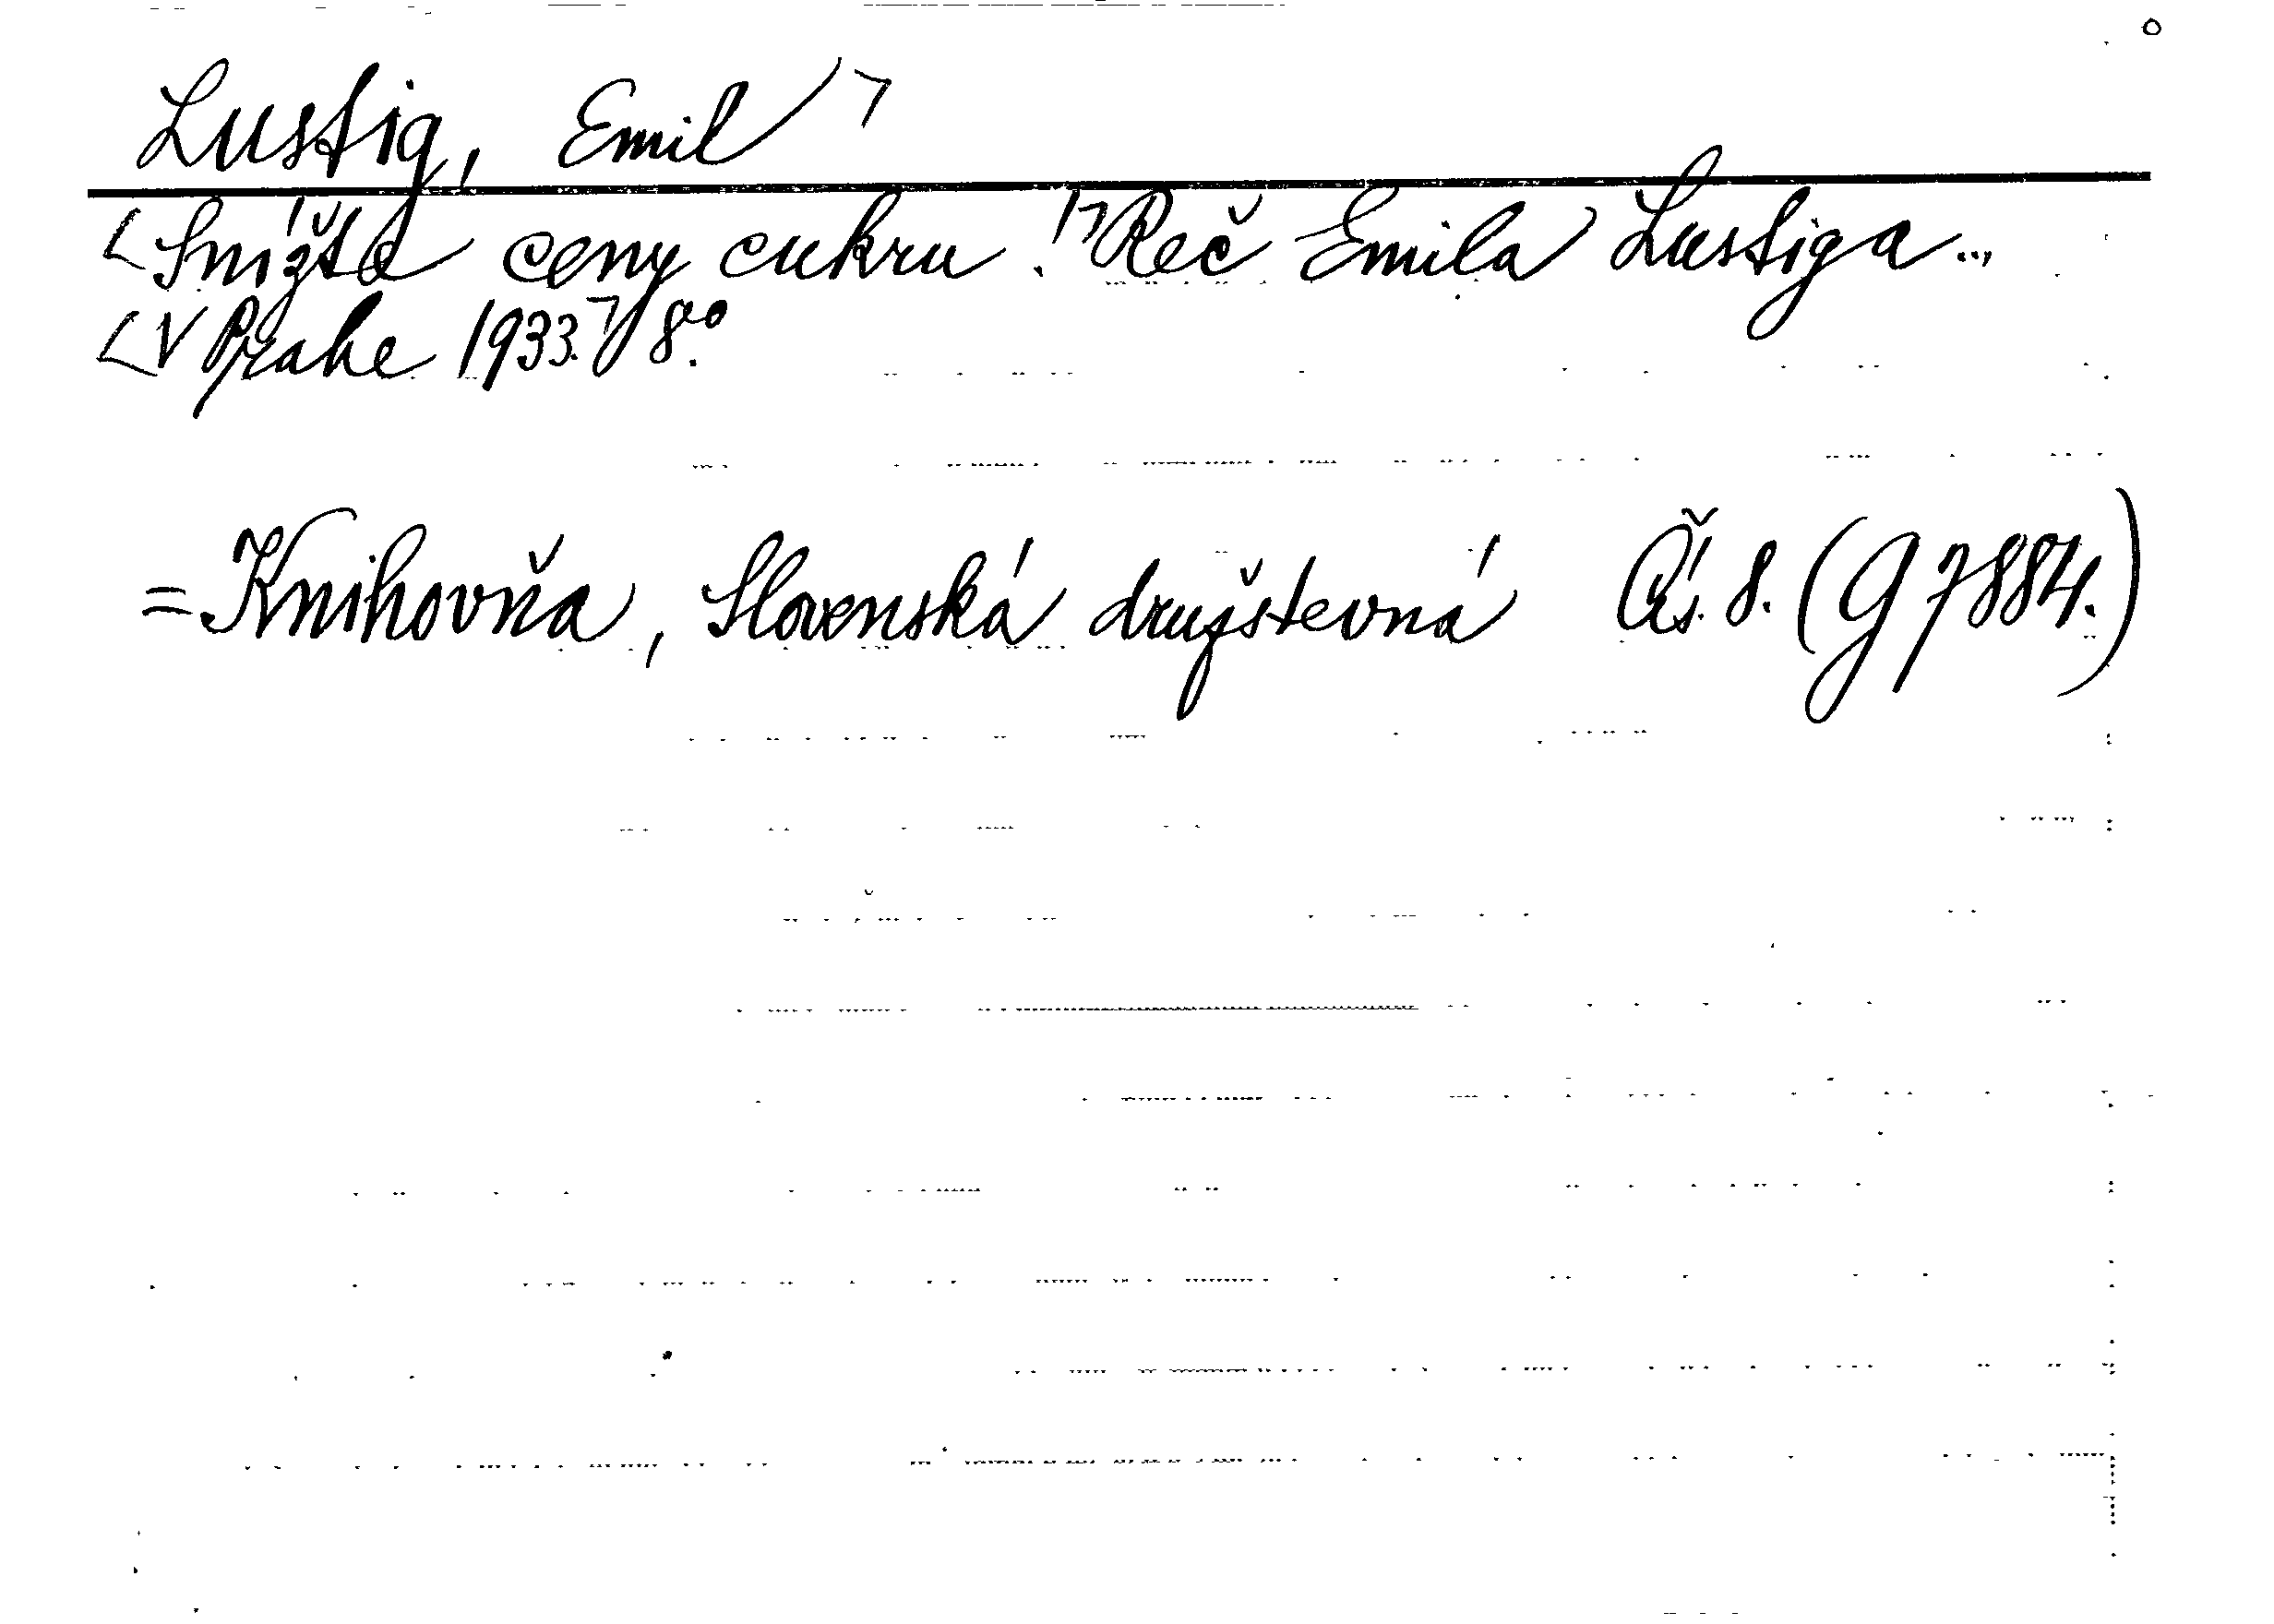 Lustig, Emil ┐
└ Snížte ceny cukru! ┐ Reč Emila Lustiga...
└ V Prahe 1933. ┐ 8°.
= Knihovňa, Slovenská družstevná Čís. 8. (G 7884.)